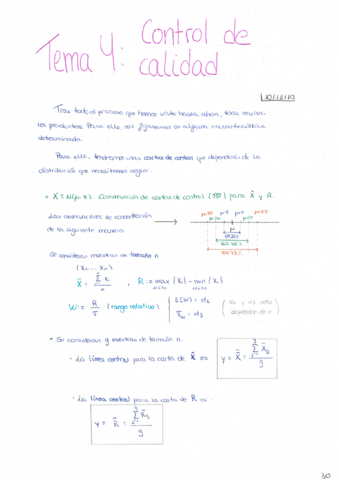 Tema 4: Control de calidad
Tras todo el proceso que hemos visto hasta ahora, toca revisar
los productos. Para ello, nos fijaremos en alguna característica
determinada.
Para ello, tendremos unas cartas de control que dependerán de la
distribución que necesitemos seguir.
• X ≡ N(μ, σ). Construcción de cartas de control para X̄ y R.
Las observaciones se concentran
de la siguiente manera:
μ
Se consideran muestras de tamaño n
(X₁, ..., Xₙ)
X̄ = Σ xᵢ / n , R := max |Xᵢ| - min |Xᵢ|
W := R / σ (rango relativo) E[W] = d₂ σ_w = d₃ (d₂ y d₃ sólo dependen de n)
• Se consideran g muestras de tamaño n.
• La línea control para la carta de X̄ es y = X̿ = Σ X̄ⱼ / g
• La línea control para la carta de R es:
y = R̄ = Σ Rⱼ / g
30